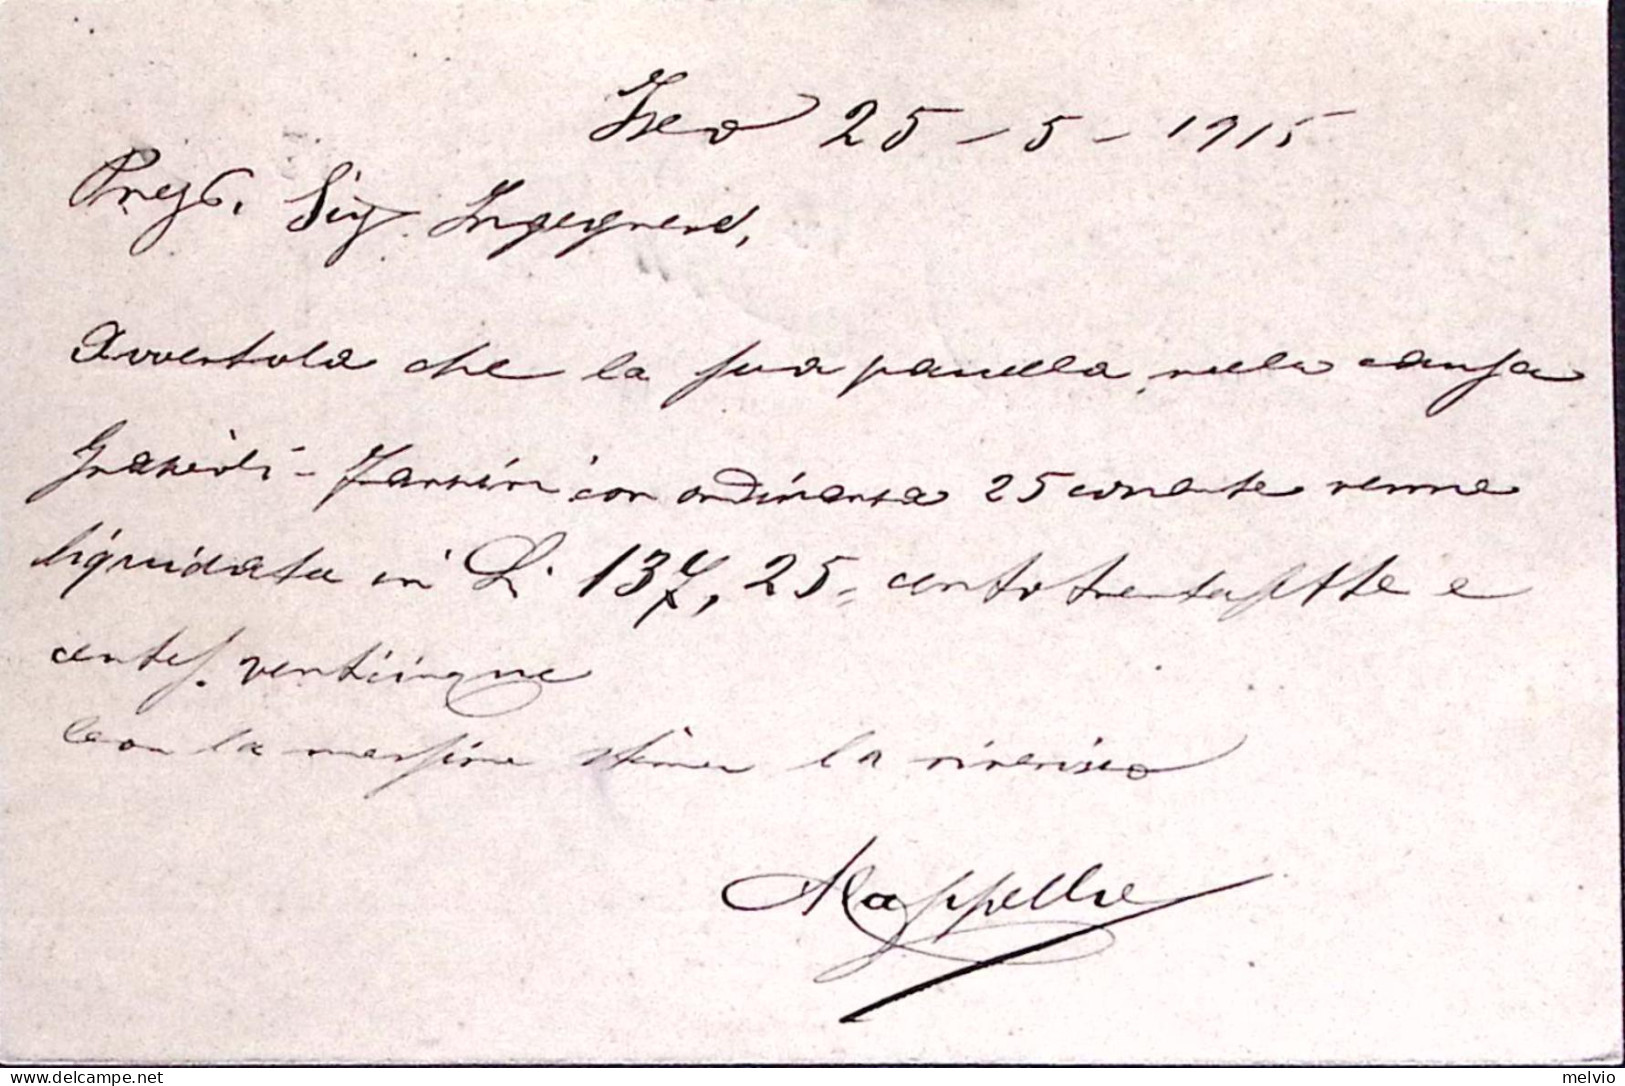 Iseo 25 - 5 - 1915
Preg. Sig. Ingegnere,
Avvertola che la sua parcella nella causa
Grazioli - Zannini con ordinanza 25 corrente venne
liquidata in L. 137,25 = centotrentasette e
centes. venticinque
Con la massima stima la riverisco
delcampe.net
melvio